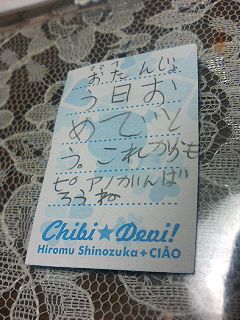 おたんじょ
う日お
めでと
う。これからも
ピアノがんば
ろうね
Chibi★Devi!
Hiromu Shinozuka+CIAO